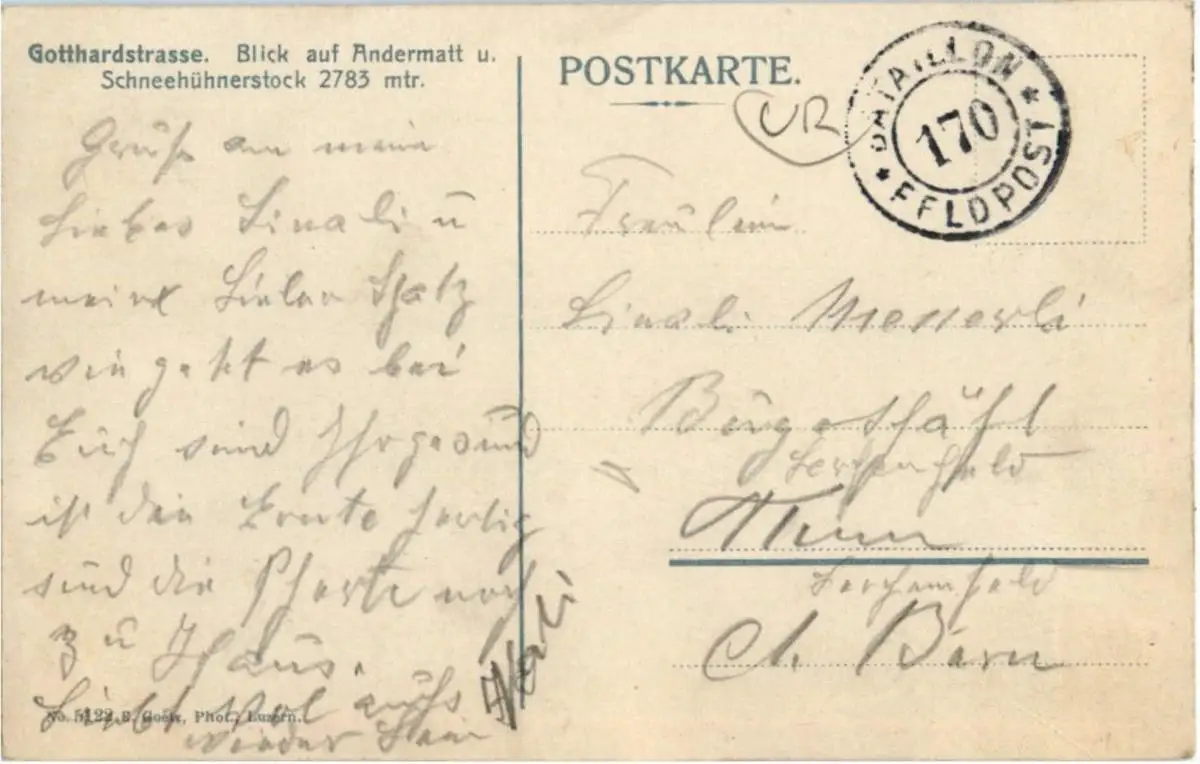 Gotthardstrasse. Blick auf Andermatt u.
Schneehühnerstock 2783 mtr.
POSTKARTE.
UR
BATAILLON
170
FELDPOST
Grüse an mein
Liebes Linali u
meine Lieber Schatz
wie geht es bei
Euch sind Ihr gesund
ist die Ernte fertig
sind die Pferte noch
zu Haus.
auf
wieder
No. 5122. E. Goetz, Phot., Luzern.
Fräulein
Linali Messerli
Lerchenfeld
Thun
Lerchenfeld
Ct. Bern